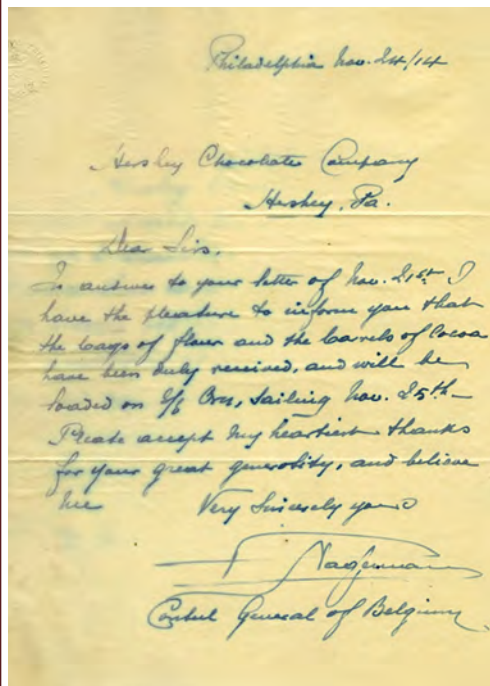 Philadelphia Nov. 24/14
Hershey Chocolate Company
Hershey, Pa.
Dear Sirs,
In answer to your letter of Nov. 21st I
have the pleasure to inform you that
the bags of flour and the barrels of Cocoa
have been duly received, and will be
loaded on S/S Orn, sailing Nov. 25th.
Please accept my heartiest thanks
for your great generosity, and believe
me Very Sincerely yours
Consul General of Belgium